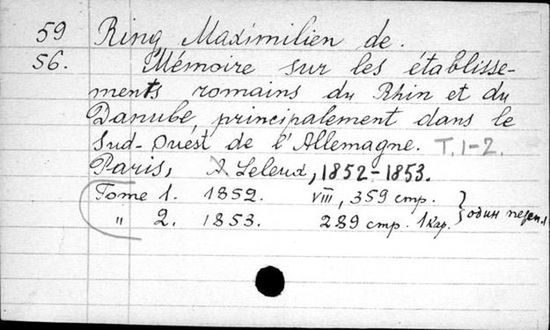 59 Ring Maximilien de.
56. Mémoire sur les établisse-
ments romains du Rhin et du
Danube, principalement dans le
Sud-Ouest de l'Allemagne. T. 1-2.
Paris, A Leleux, 1852-1853.
Tome 1. 1852. VIII, 359 стр.
" 2. 1853. 289 стр. 1 кар. } один переп.